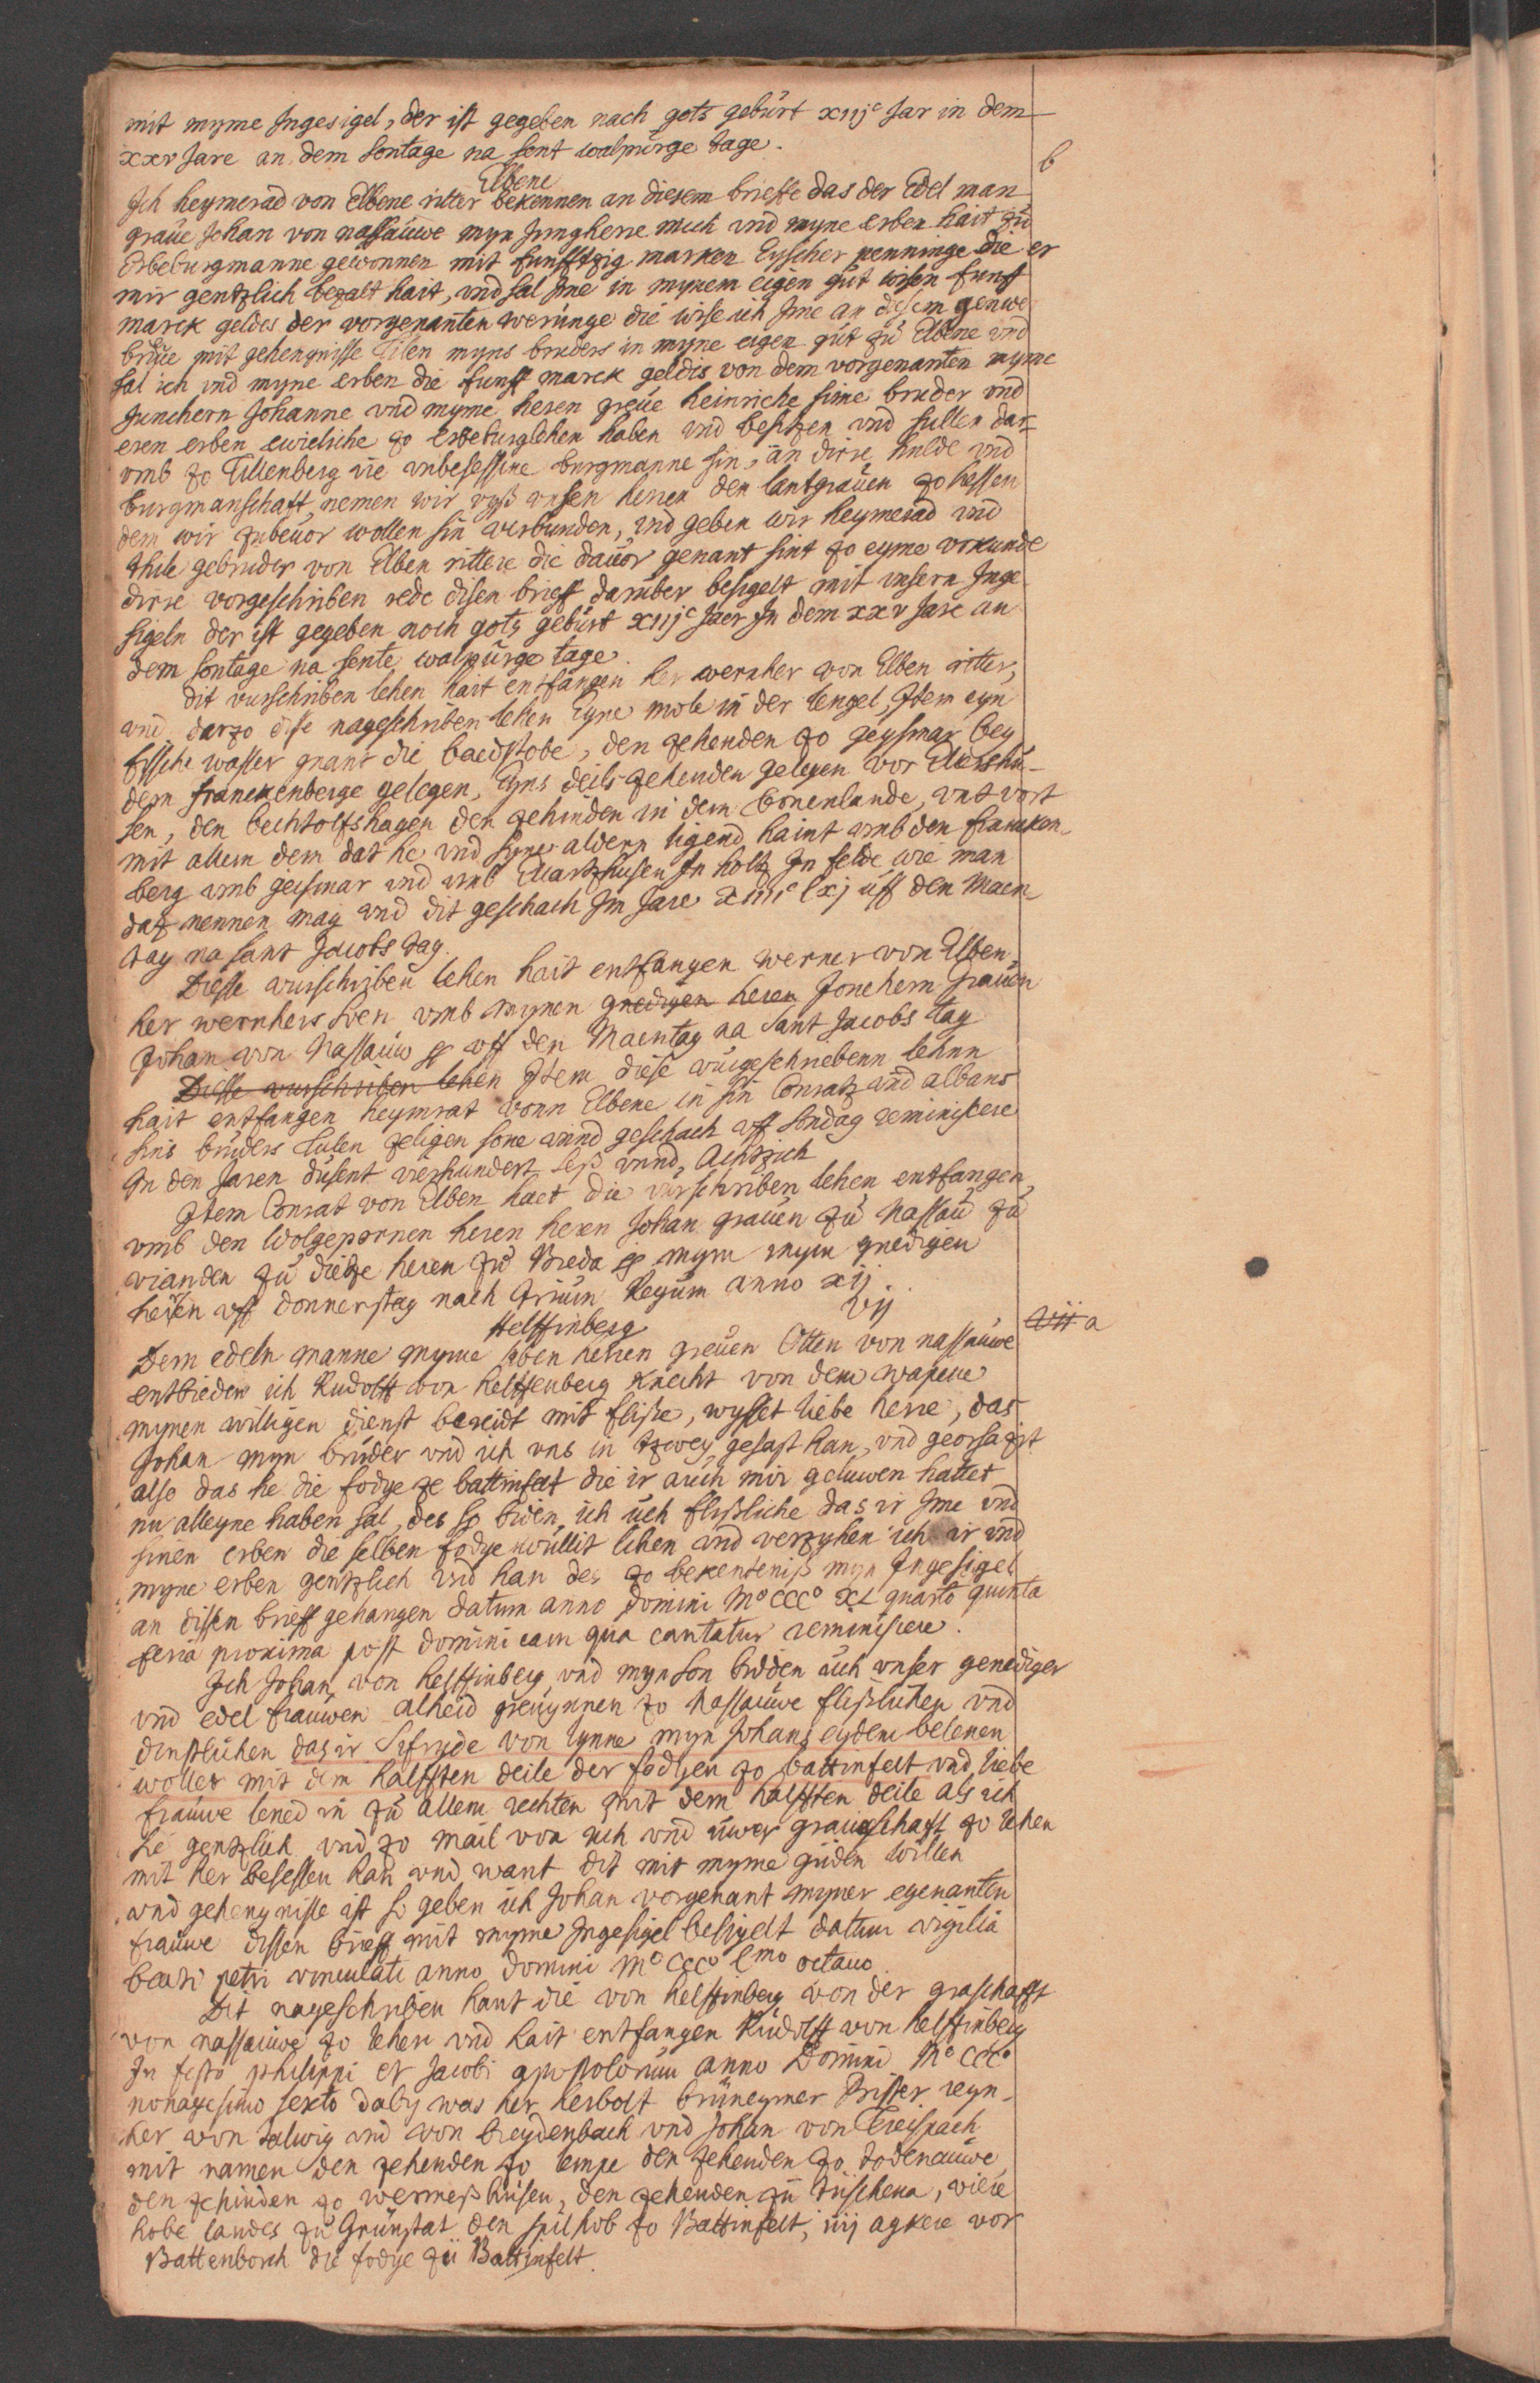 mit myme Ingesigel, der ist gegeben nach gots geburt xiijc Jar in dem
xxv Jare an dem Sontage na sent walpurge tage.
b
Elbene
Ich heymerad von Elbene ritter bekennen an diesem brieffe das der Edel man
graue Johan von nassauwe myn Jungherre mich vnd myne erben hait zu
Erbeburgmanne gewonnen mit funfftzig marken Eyscher penninge die er
mir gentzlich bezalt hait, vnd sal Ime in mynem eigen gut wisen funff
marck geldes der vorgenanten werunge die wise ich Ime an disem genwe
briue mit gehengnisse Tilen myns bruders in myne eigen gut zu Elbene vnd
sal ich vnd myne erben die funff marck geldis von dem vorgenanten myme
Junchern Johanne vnd myme heren greue heinriche sime bruder vnd
eren erben ewicliche zo erbeburglehen haben vnd besitzen vnd sullen dar
vmb zo Tillenberg ire vnbesessene burgmanne sin, an dirre hulde vnd
burgmanschaft, nemen wir vyß vnsen herren den lantgrauen zo hessen
dem wir zubeuor wollen sin verbunden, vnd geben wir heymerad vnd
thile gebruder von Elben rittere die dauor genant sint zo eyme vrkunde
dirre vorgeschriben rede disen brieff daruber besigelt mit vnsern Inge
sigeln der ist gegeben noch gots geburt xiijc Jaer In dem xxv Jare an
dem sontage na sente walpurge tage.
Dit vurschriben lehen hait entfangen her wernher von Elben ritter,
vnd darzo dise nageschriben lehen Eyne mole in der lengel, Item eyn
fissche wasser gnant die baedstobe, den zehenden zo geysmar bey
dem franckenberge gelegen, Eyns deils zehenden gelegen vor
sen, den bechtolfshagen den zehinden in dem bonenlande, vnt vort
mit allem dem dat he vnd syne aldern ligend haint vmb den francken
berg vmb geismar vnd vmb In holtz In felde wie man
datz nennen mag vnd dit geschach Im Jare xiiijc lxj uff den Maen
tag na sant Jacobs tag.
Diesse vurschriben lehen hait entfangen werner von Elben
her wernhers soen vmb mynen gnedigen heren Jonchern Grauen
Johan von Nassauw uff den Maentag na Sant Jacobs tag
Diesse vurschriben lehen Item diese vurgeschriebenn lehnn
hait entfangen heymrat vonn Elbene in sin Conratz vnd albans
sins bruders Tulen zeligen sone vnnd geschach uff sondag reminiscere
In den Jaren dusent vierhundert seß vnnd Achtzich
Item Conrat von Elben haet die vurschriben lehen entfangen
vmb den Wolgepornen heren hern Johan grauen zu Nassau zu
vianden zu dietze heren zu Breda mym mym gnedigen
herren uff donnerstag nach trium Regum anno xij.
vij
vii a
Helffinberg
Dem edeln manne myme leben herren greuen Otten von nassauwe
entbieden ich Rudolff von helffenberg knecht von dem wapene
mynen willigen dienst bereidt mit flisse, wysset liebe herre, das
Johan myn bruder vnd ich vns in tzwey gesast han, vnd georsazit
also das he die fodye ze battinfelt die ir auch mir geluwen hattet
nu alleyne haben sal, des so biden ich uch flißliche das ir Ime vnd
sinen erben die selben fodye wullit lihen vnd verzyhen ich ir vnd
myne erben gentzlich vnd han des zo bekentniß myn Ingesigel
an dissen brieff gehangen datum anno domini Mo CCCo XL quarto quinta
feria proxima post dominicam qua cantatur reminiscere.
Ich Johan von helffinberg vnd myn son bidden uch vnser genediger
vnd edel frauwen alheid greuynnen zo Nassauwe flißlichen vnd
dinstlichen das ir Sifryde von lynne myn Johans eydem belenen
wollet mit dem halfften deile der fodyen zo battinfelt vnd liebe
frauwe lened in zu allem rechten mit dem halfften deile als ich
he gentzlich vnd zo mail von uch vnd uwer graueschafft zo lehen
mit her besessen han vnd want dit mit myme guden willen
vnd gehengnisse ist so geben ich Johan vorgenant myner egenanten
frauwe dissen brieff mit myme Ingesigel besigelt datum vigilia
beati petri vinculati anno domini Mo CCCo Lmo octauo
Dit nageschriben hant die von helffinberg von der graschafft
von nassauwe zo lehen vnd hait entfangen Rudolff von helffinberg
In festo philippi et Jacobi apostolorum anno Domini Mo CCCo
nonagesimo sexto daby was her herbolt Ritter reyn
her von Talwig vnd von breydenbach vnd Johan von
mit namen den zehenden zo empe den zehenden zo dodenauwe
den zehinden zo wermeßhusen, den zehenden zu , viere
hobe landes zu Grunstat den spilhob zo Battinfelt, iiij agkere vor
Battenborch die fodye zu Battinfelt.